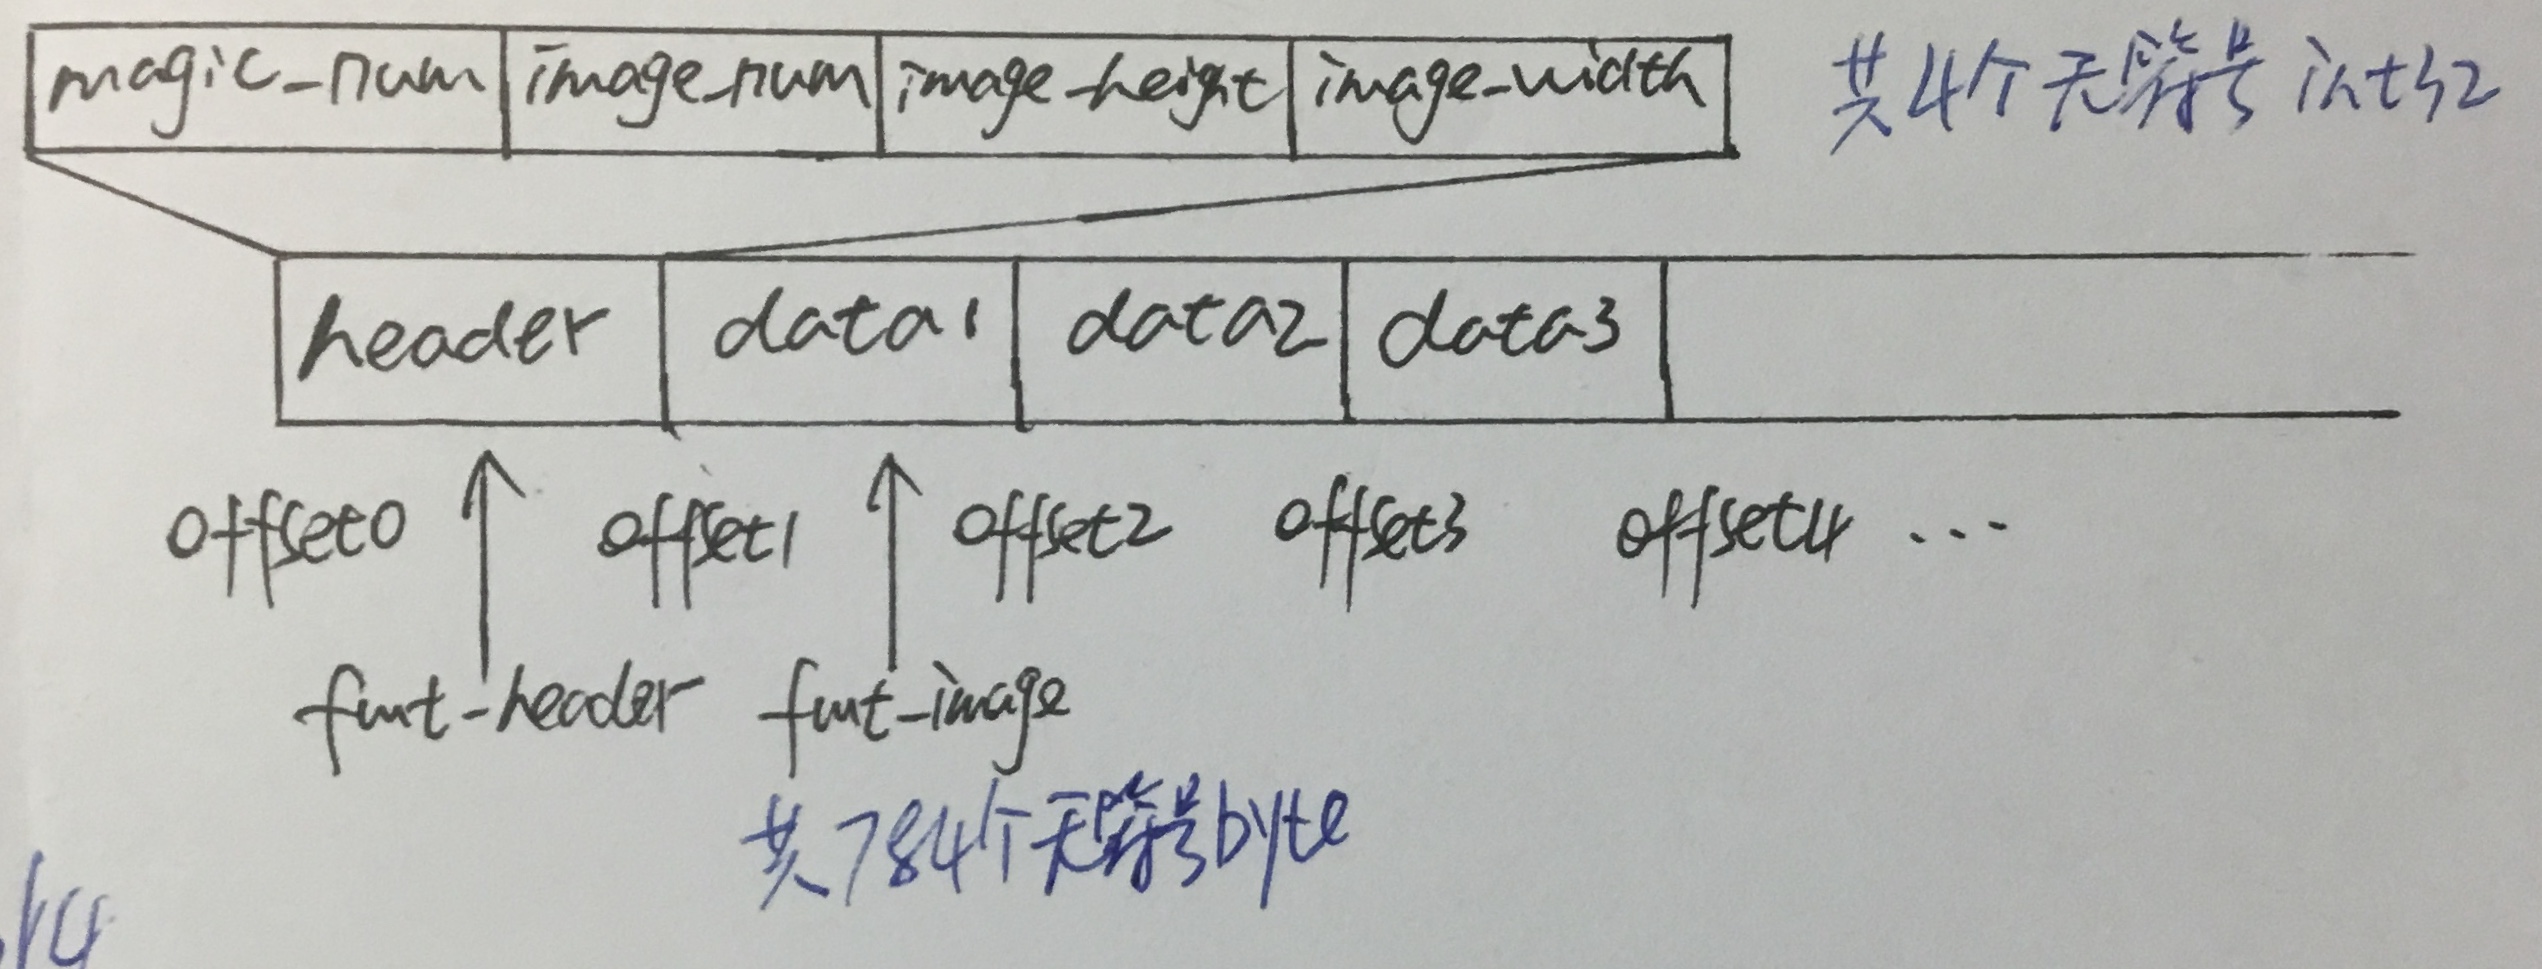 magic_num image_num image_height image_width 共4个无符号int32
header data1 data2 data3
offset0 offset1 offset2 offset3 offset4 ...
fmt_header fmt_image
共784个无符号byte